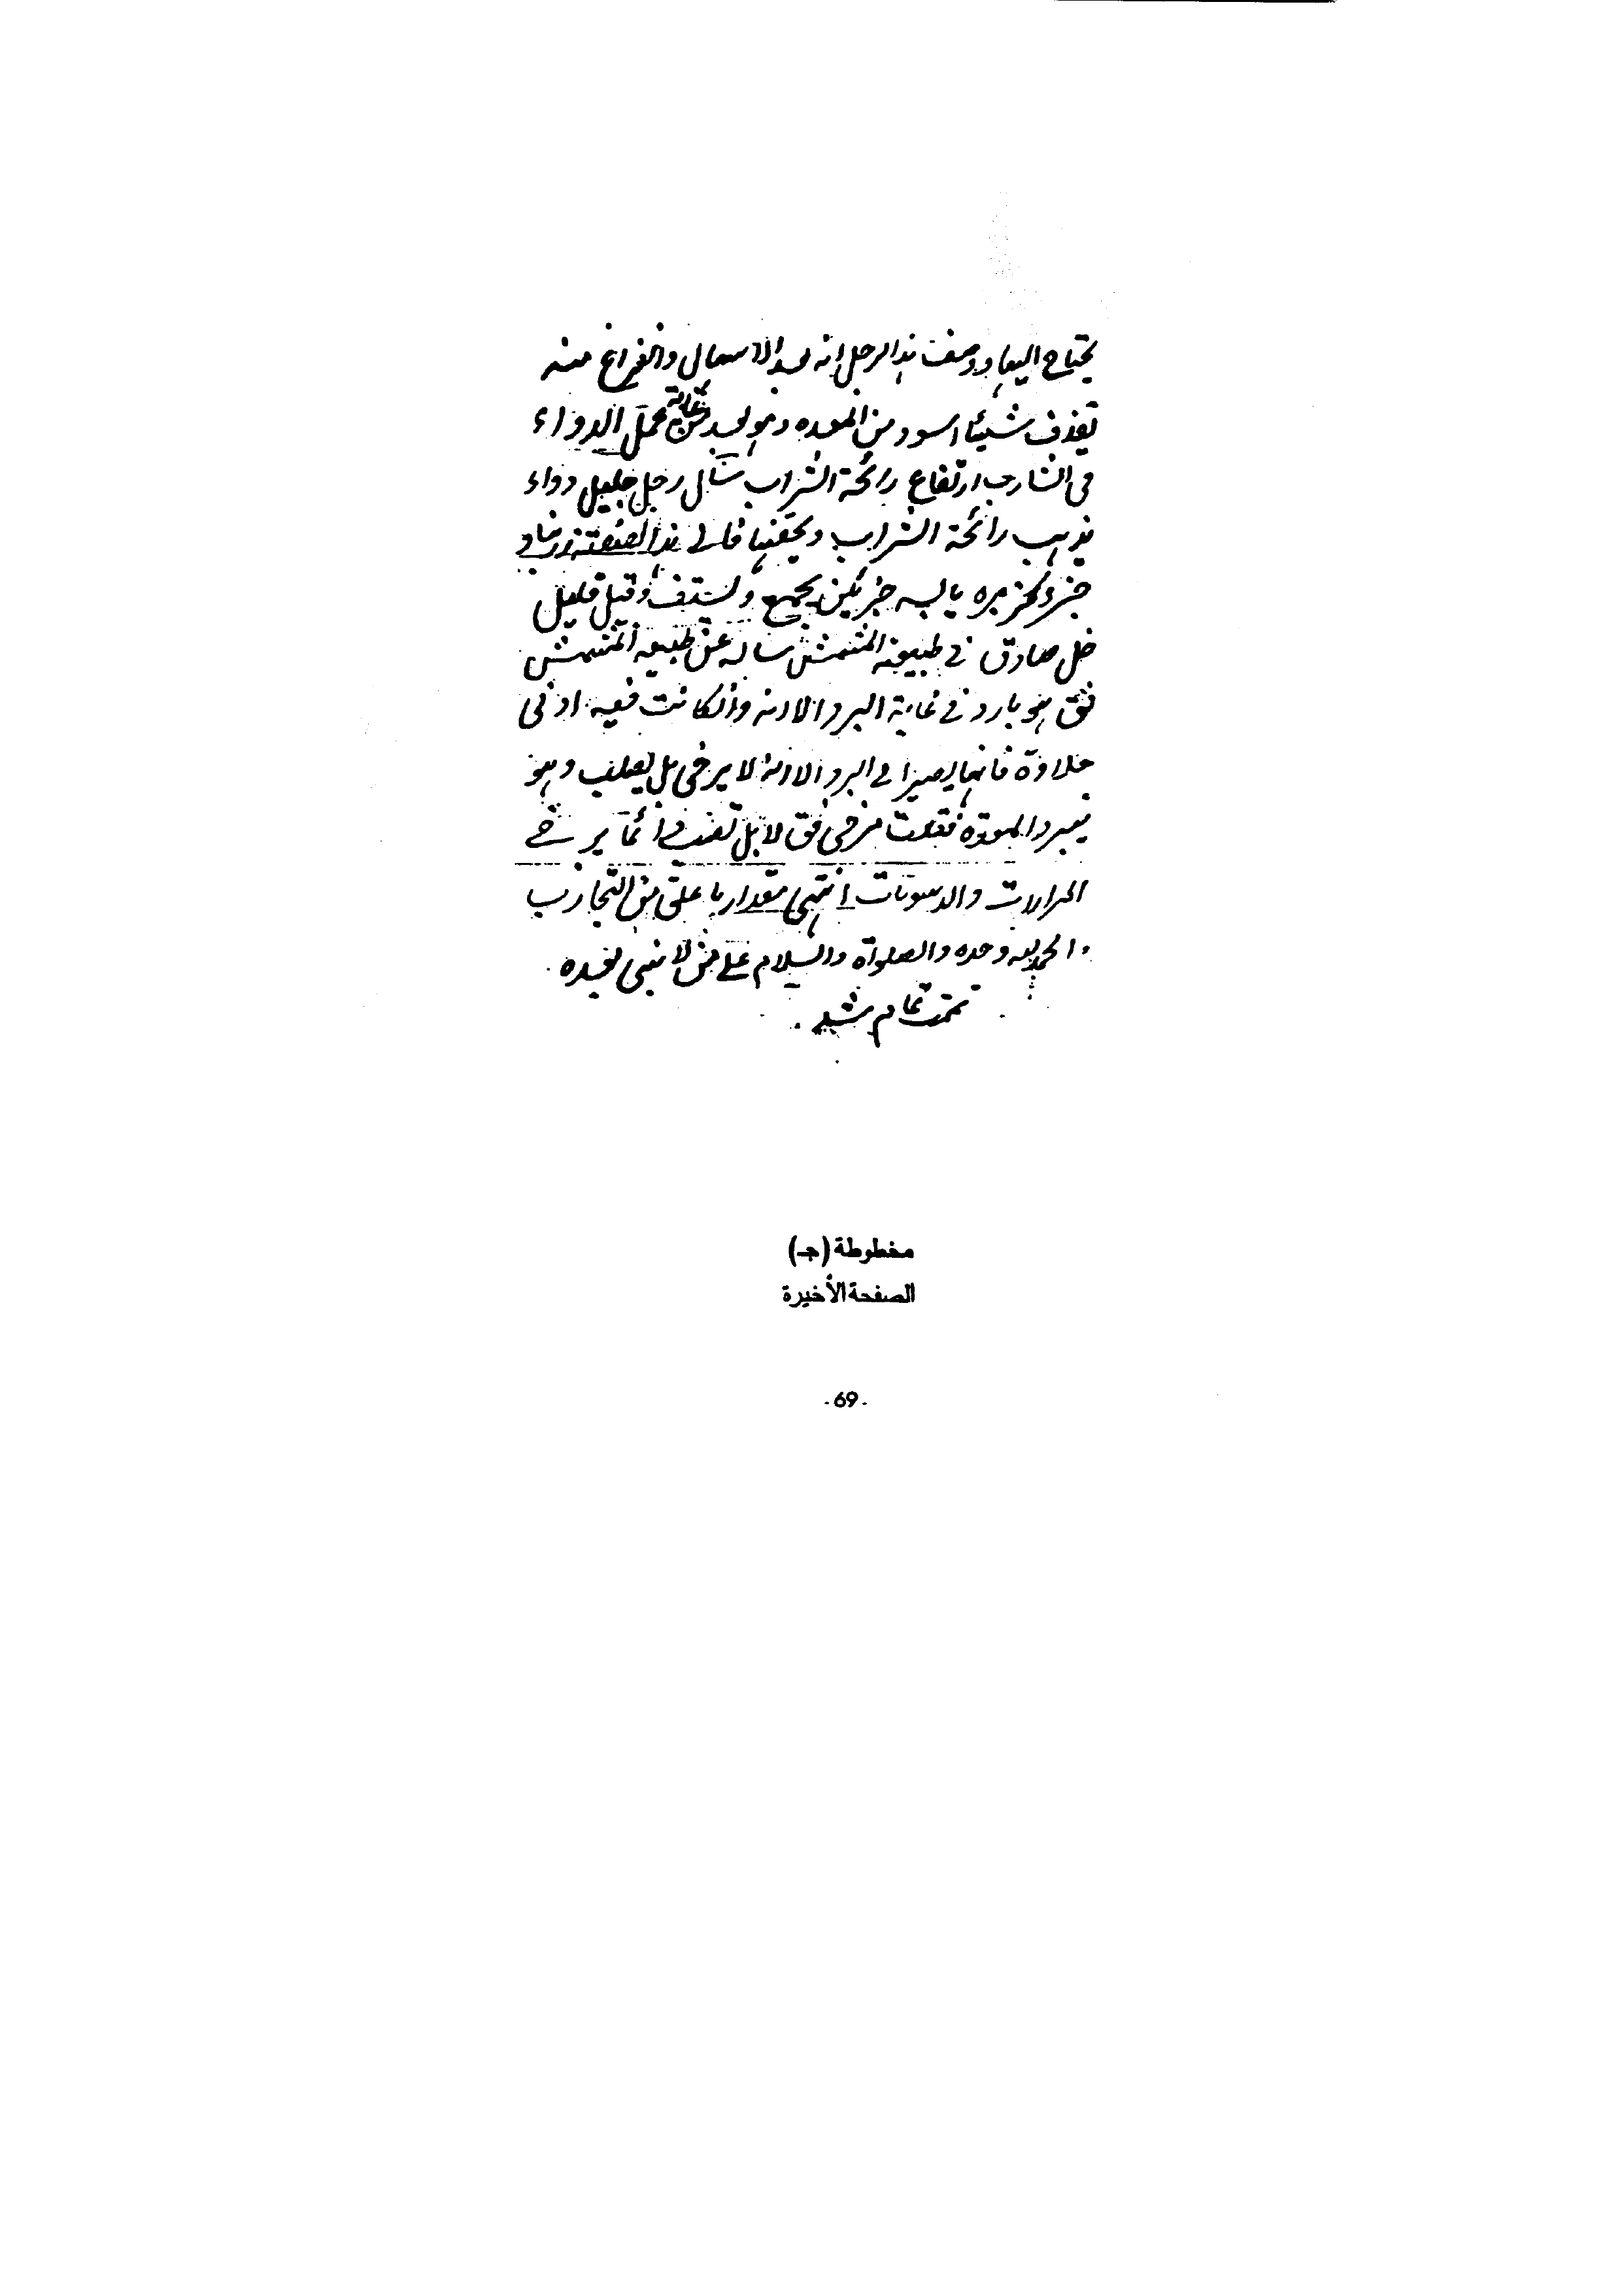 يحتاج اليها ووصف هذا الرجل انه بعد الاسهال والفراغ منه
يقذف شيئا اسود من المعده وهو بعد عمل الدواء
فى الشارب ارتفاع رائحة الشراب سال رجل جليل دواء
يذهب رائحة الشراب ويخفيها فا لى هذا
جزو كزبره يابسه جزئين يجمع ويستف وقبل قليل
خل صادق فى طبيعة المشمش ساله عن طبيعه المشمش
فق هو بارد فى غاية البرد الا انه وان كانت فيه ادنى
حلاوة فانها يصير الى البرد الا انه لا يرخى بل يصلب وهو
يبرد المعدة فقلت يرخى فق لا بل دائما يرخى
الحرارات والدسومات انتهى مقدار ما علق من التجارب
والحمد لله وحده والصلواة والسلام على من لا نبى بعده
تمت تمام شد
مخطوطة (جـ)
الصفحة الأخيرة
- 69 -